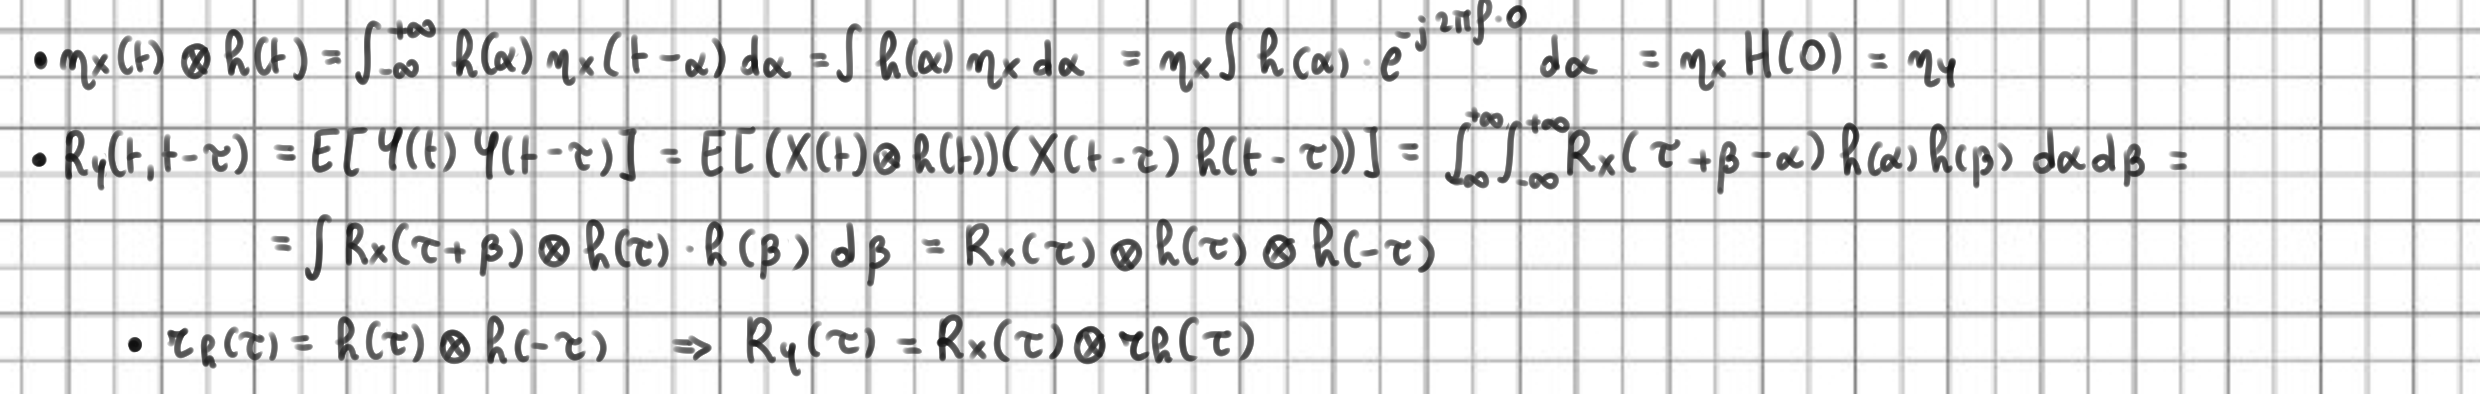 • η_x(t) ⊗ h(t) = ∫_{-∞}^{+∞} h(α) η_x(t-α) dα = ∫ h(α) η_x dα = η_x ∫ h(α) · e^{-j2πf·0} dα = η_x H(0) = η_y
• R_y(t,t-τ) = E[Y(t) Y(t-τ)] = E[(X(t)⊗h(t))(X(t-τ) h(t-τ))] = ∫_{-∞}^{+∞}∫_{-∞}^{+∞} R_x(τ+β-α) h(α) h(β) dα dβ =
= ∫ R_x(τ+β) ⊗ h(τ) · h(β) dβ = R_x(τ) ⊗ h(τ) ⊗ h(-τ)
• r_h(τ) = h(τ) ⊗ h(-τ) ⇒ R_y(τ) = R_x(τ) ⊗ r_h(τ)